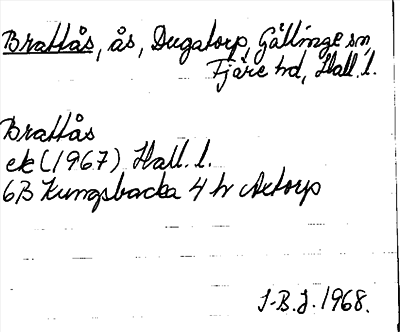 Brattås, ås, Dugatorp, Gällinge sn,
Fjäre hd, Hall. l.
Brattås
ek (1967) Hall. l.
6B Kungsbacka 4 h Axtorp
J-B.J. 1968.